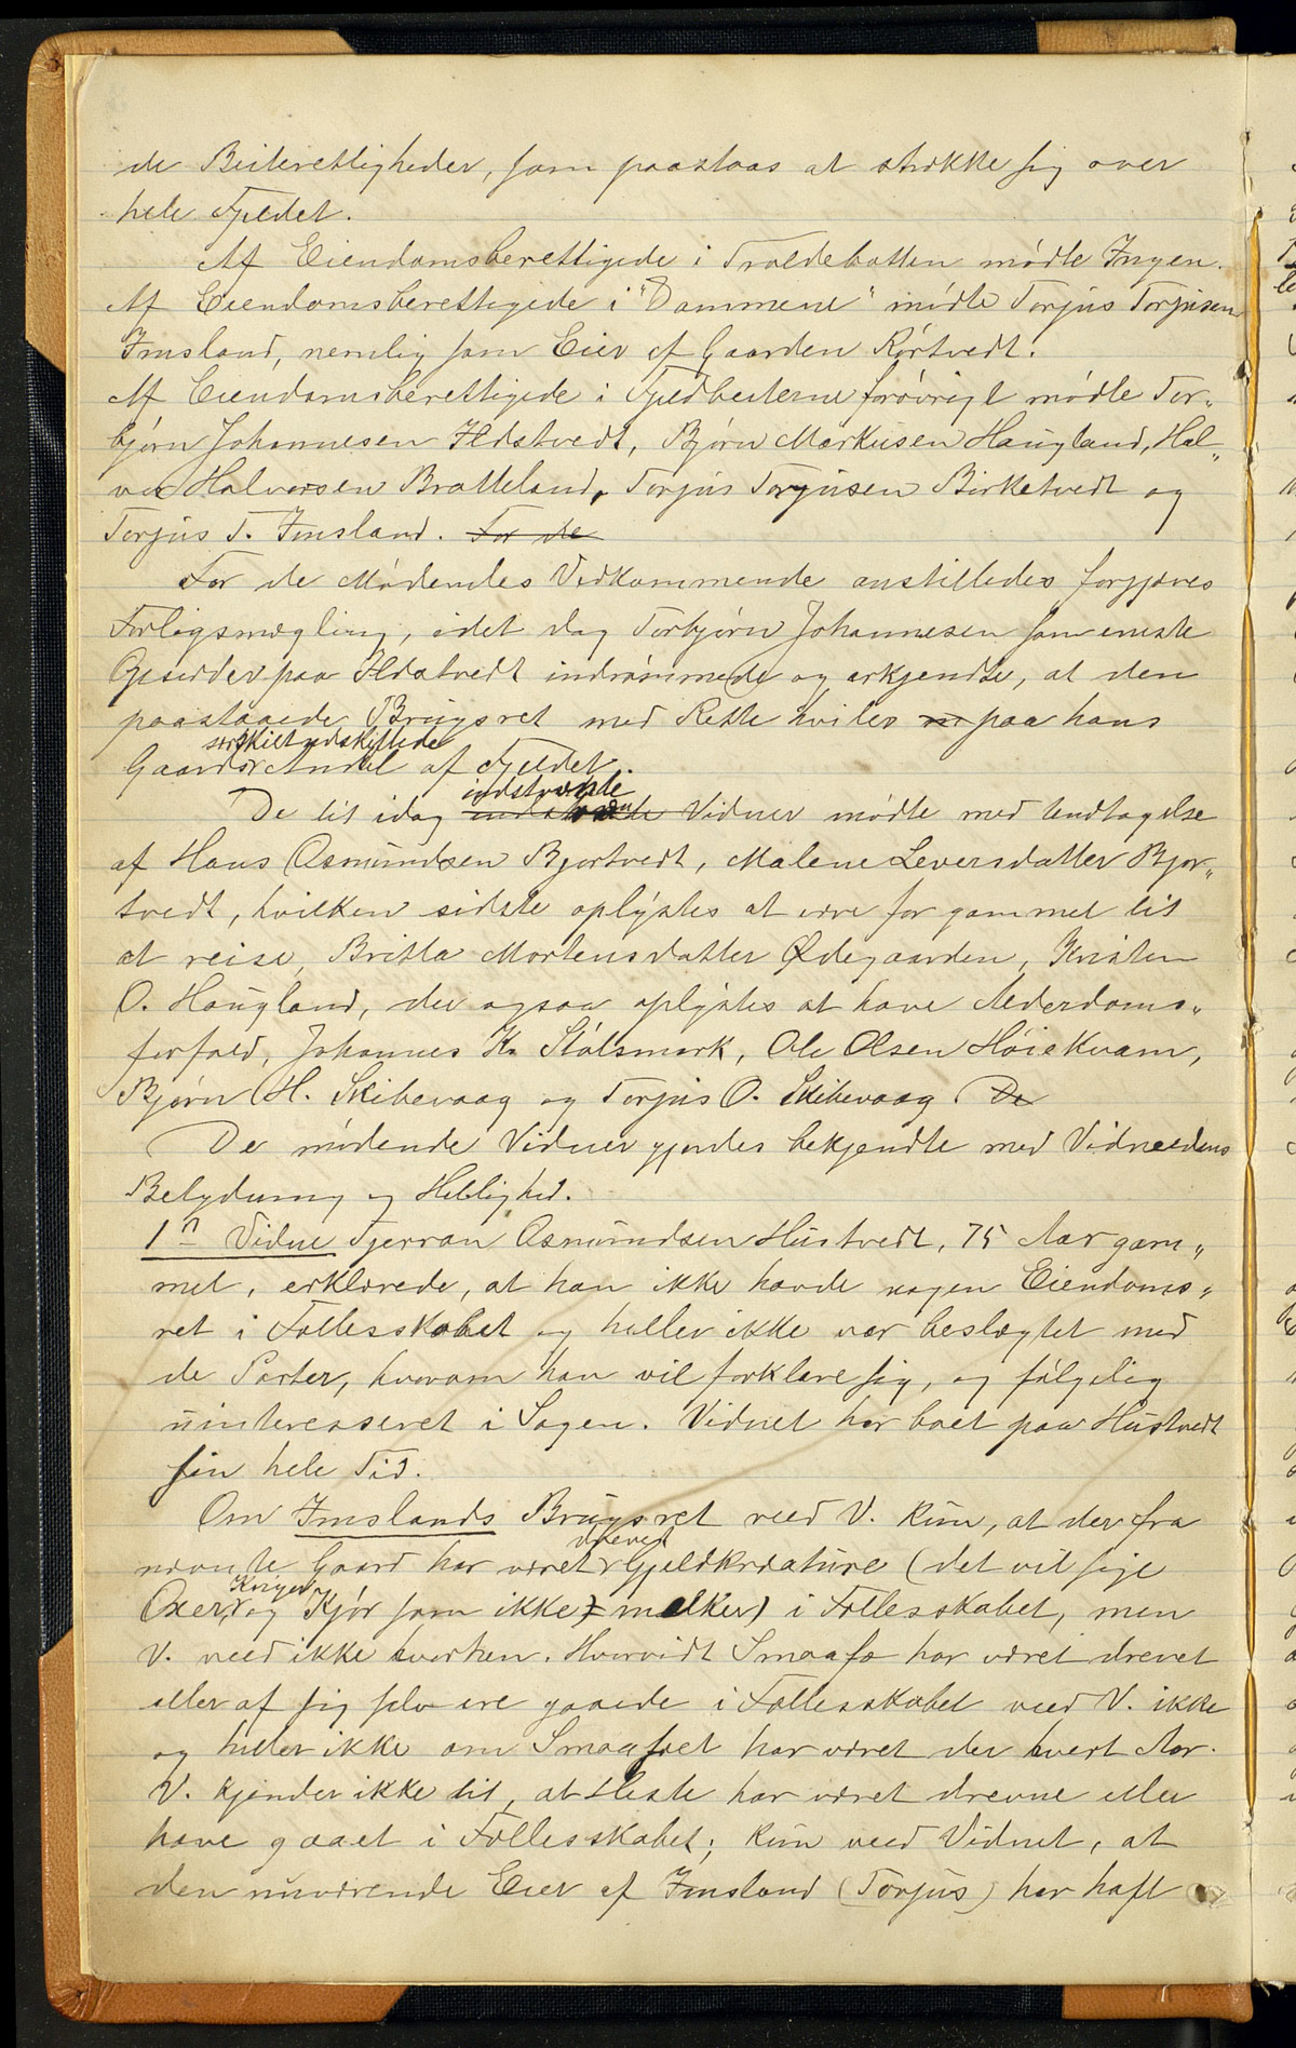 de Beiterettigheder, som paastaas at strække sig over
hele Fjeldet.
Af Eiendomsberettigede i Troldebotten mødte Ingen.
Af Eiendomsberettigede i "Dammene" mødte Torjus Torjusen
Imsland, nemlig som Eier af Gaarden Rørtvedt.
Af Eiendomsberettigede i Fjeldbeiterne forøvrigt mødte Tor„
bjørn Johannesen Ilstvedt, Bjørn Markusen Haugland, Hal„
vor Halvorsen Bratteland, Torjus Torjusen Birketvedt og
Torjus T. Imsland. For de
For de Mødendes Vedkommende anstilledes forgjæves
Forligsmægling, idet dog Torbjørn Johannesen som eneste
Opsidder paa Ilstvedt indrømmede og erkjendte, at den
paastaaede Brugsret med Rette hviler paa hans
særskilt udskiftede
Gaards Andel af Fjeldet.
indstævnte
De til idag Vidner mødte med Undtagelse
af Hans Osmundsen Bjortvedt, Malene Leversdatter Bjor„
tvedt, hvilken sidste oplystes at være for gammel til
at reise, Britta Mortensdatter Ødegaarden, Kristen
O. Haugland, der ogsaa oplystes at have Alderdoms„
forfald, Johannes K. Stølsmark, Ole Olsen Høiekvam,
Bjørn H. Skibevaag og Torjus O. Skibevaag. De
De mødende Vidner gjordes bekjendte med Vidneedens
Betydning og Hellighed.
1ste Vidne Tjerran Osmundsen Hustvedt, 75 Aar gam„
mel, erklærede, at han ikke havde nogen Eiendoms„
ret i Fællesskabet og heller ikke var beslægtet med
de Parter, hvorom han vil forklare sig, og følgelig
uinteresseret i Sagen. Vidnet har boet paa Hustvedt
sin hele Tid.
Om Imslands Brugsret veed V. kun, at der fra
drevet
nævnte Gaard har været Gjeldkreature (det vil sige
Kviger
Oxer, og Kjør som ikke melker) i Fællesskabet, men
V. veed ikke hvorhen. Hvorvidt Smaafæ har været drevet
eller af sig selv ere gaaede i Fællesskabet veed V. ikke
og heller ikke om Smaafæet har været der hvert Aar.
V. kjender ikke til, at Heste har været drevne eller
have gaaet i Fællesskabet; kun veed Vidnet, at
den nuværende Eier af Imsland (Torjus) har haft